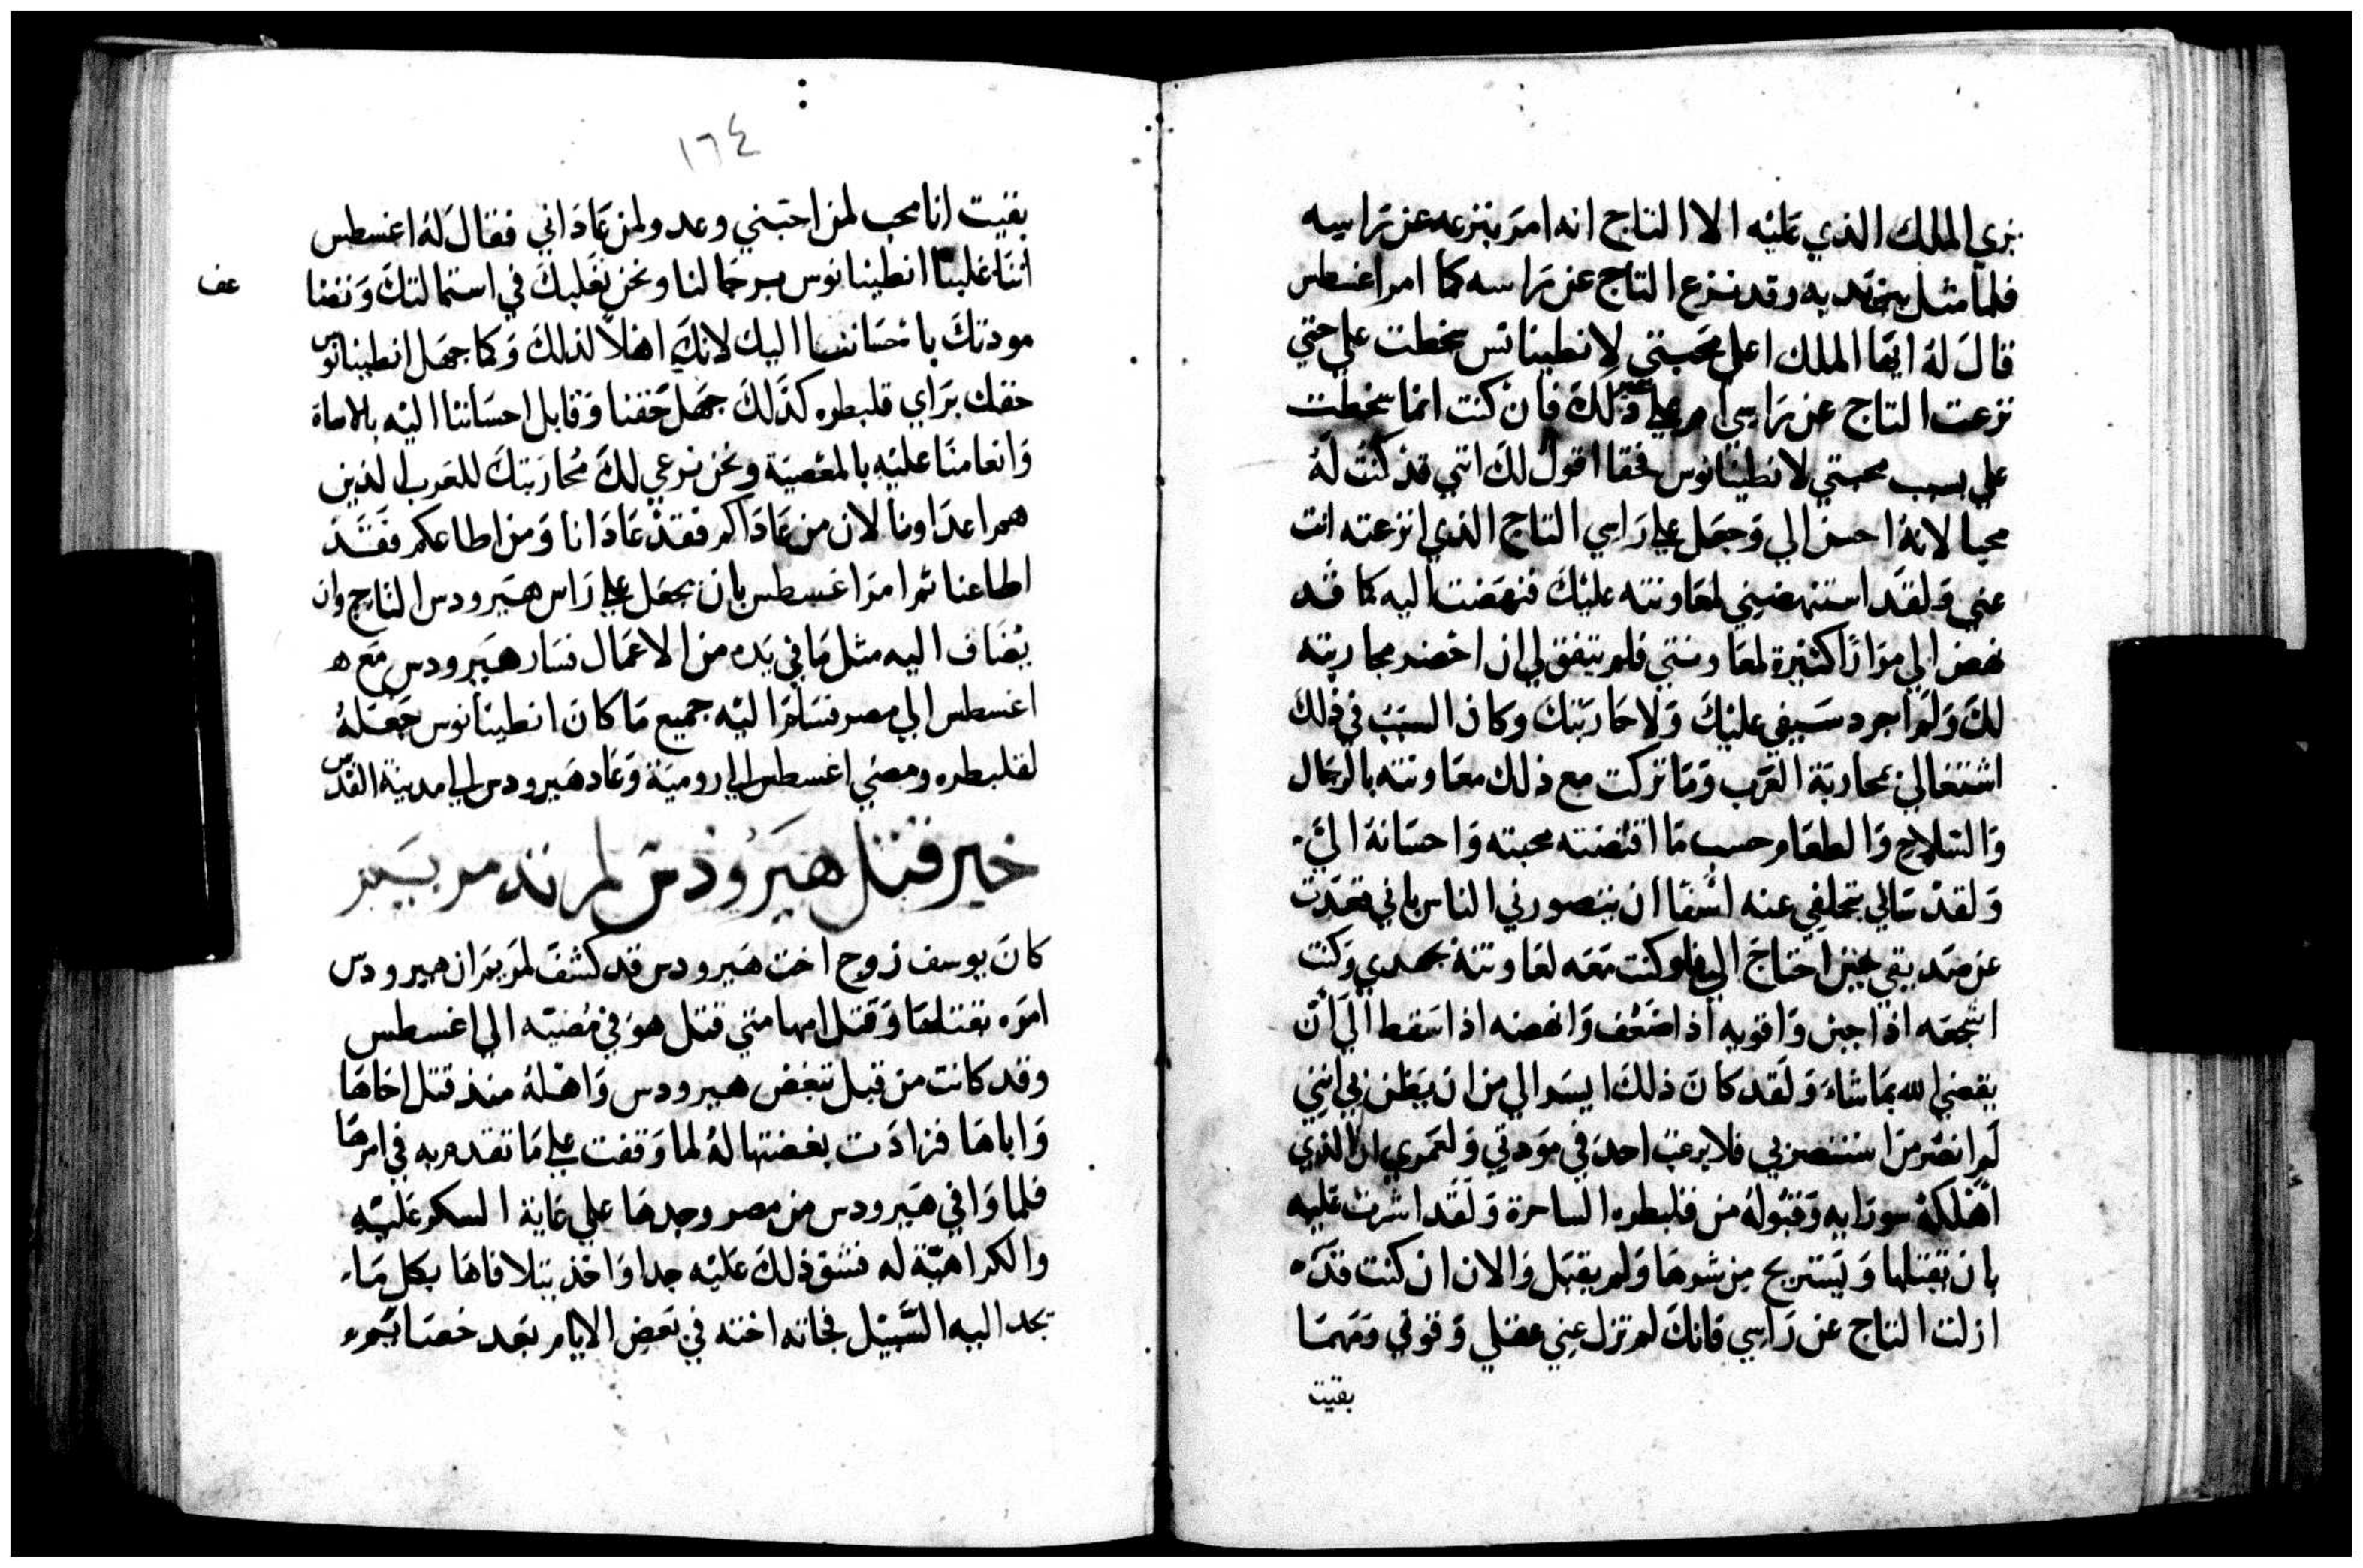 بزي الملك الذي عليه الا التاج انه امر بنزعه عن راسه
فلما مثل بين يديه وقد نزع التاج عن راسه كما امر اغسطس
قال له ايها الملك اعلي محبتي لانطينانس سخطت علي حتي
نزعت التاج عن راسي ام علي غير ذلك فان كنت انما سخطت
علي بسبب محبتي لانطينانوس فحقا اقول لك انني قد كنت له
محبا لانه احسن الي وجعل علي راسي التاج الذي انزعته انت
عني ولقد استنهضني لمعاونته عليك فنهضت اليه كما قد
نهض الي مرارا كثيرة لمعاونتي فلم يتفق لي ان احضر محاربته
لك ولم اجرد سيفي عليك ولا حاربتك وكان السبب في ذلك
اشتغالي بمحاربة العرب وما تركت مع ذلك معاونته بالرجال
والسلاح والطعام حسب ما اقتضته محبته واحسانه الي
ولقد سالي تخلفي عنه اشفا ان يتصورني الناس باني قعدت
عن صديقي حين احتاج الي فلو كنت معه لعاونته بجهدي وكنت
اشجعه اذا جبن واقويه اذا ضعف وانهضه اذا سقط الي ان
يقضي الله بما شاء ولقد كان ذلك ايسر الي من ان يظن بي انني
لم انصر من استنصر بي فلا يرغب احد في مودتي ولعمري ان الذي
اهلكه سو رايه وقبوله من قلبطره الساحرة ولقد اشرت عليه
بان يقتلها ويستريح من شرها ولم يقبل والان ان كنت قد
ازلت التاج عن راسي فانك لم تزل عني عقلي وقوتي ومهما
بقيت
١٦٤
بقيت انا محب لمن احبني وعدو لمن عاداني فقال له اغسطس
اننا غلبنا انطينانوس برجالنا ونحن نغلبك في استمالتك ونقنا
عف
مودتك باحساننا اليك لانك اهلا لذلك وكما جهل انطينانوس
حقك براي قلبطره كذلك جهل حقنا وقابل احساننا اليه بالاساة
وانعامنا عليه بالمعصية ونحن نرعي لك محاربتك للعرب الذين
هم اعداونا لان من عاداكم فقد عادانا ومن اطاعكم فقد
اطاعنا ثم امر اغسطس بان يجعل علي راس هيرودس التاج وان
يضاف اليه مثل ما في يده من الاعمال فسار هيرودس مع
اغسطس الي مصر فسلم اليه جميع ما كان انطينانوس جعله
لقلبطره ومضي اغسطس الي رومية وعاد هيرودس الي مدينة القدس
خبر قتل هيرودس لمرته مريم
كان يوسف زوج اخت هيرودس قد كشف لمريم ان هيرودس
امره بقتلها وقتل امها متي قتل هو في مضيه الي اغسطس
وقد كانت من قبل تبغض هيرودس واهله منذ قتل اخاها
واباها فزادت بغضتها له لما وقفت علي ما تقدم به في امرها
فلما وافي هيرودس من مصر وجدها علي غاية السكر عليه
والكراهية له فشق ذلك عليه جدا واخذ يتلافاها بكل ما
يجد اليه السبيل فجاته اخته في بعض الايام بعد خصايم